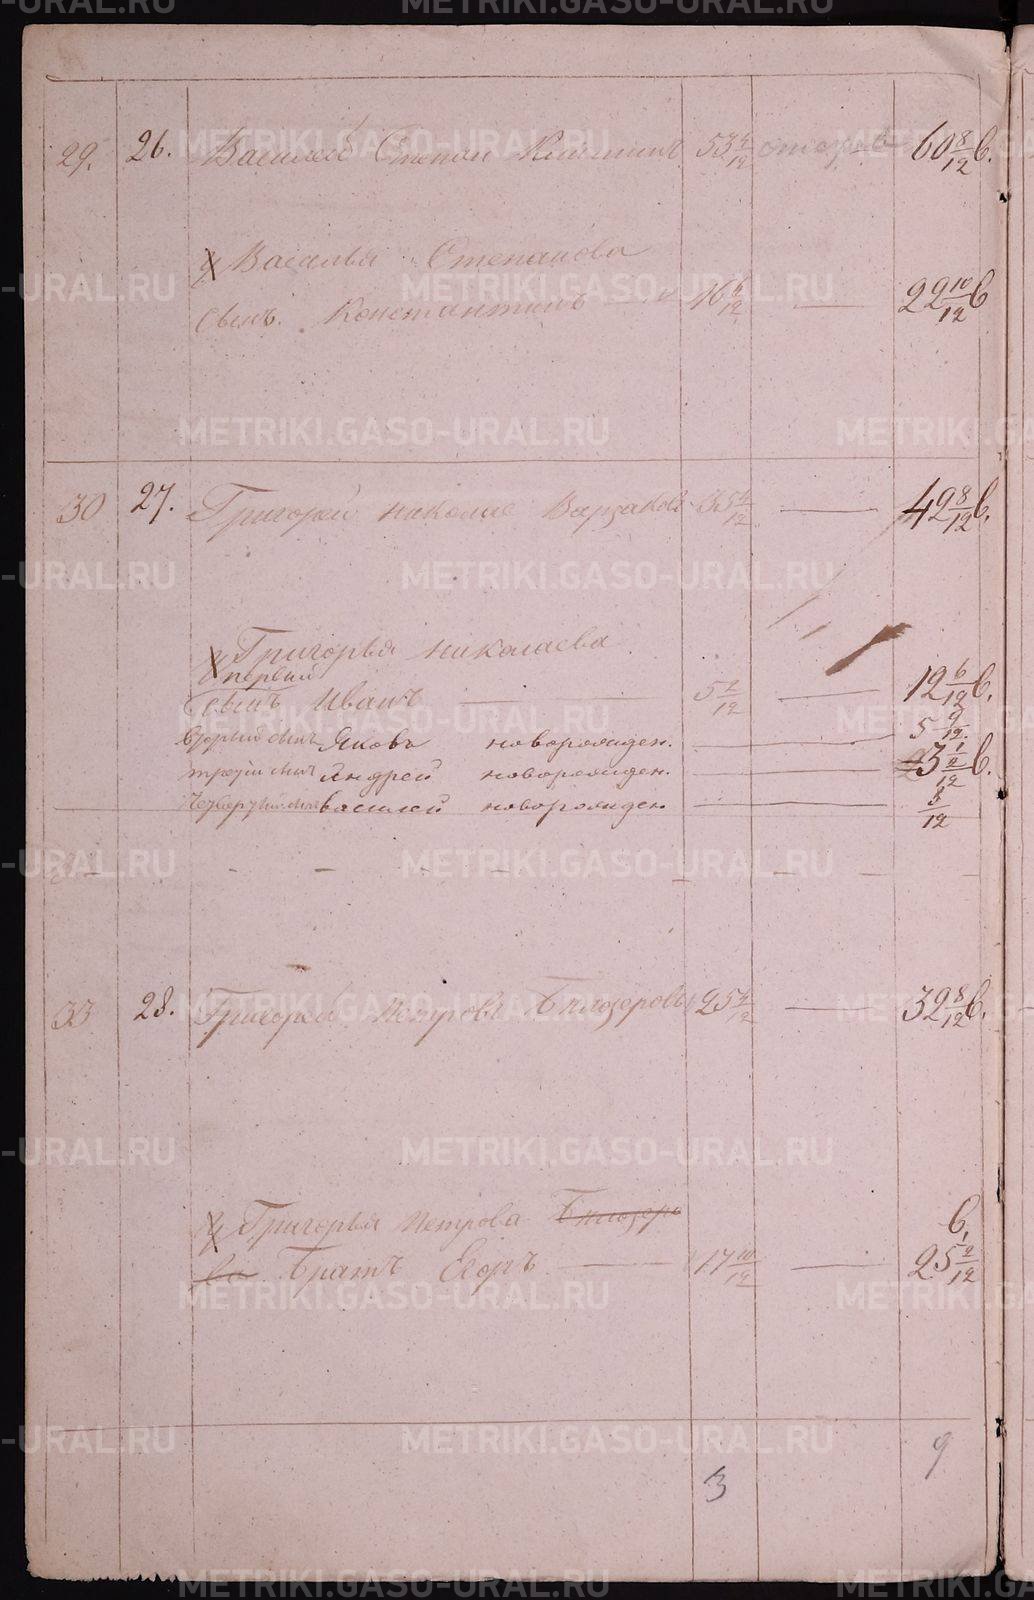 29. 26. Василей Степан 53 4/12 60 8/12 в.
у Василья Степанова
сынъ Константинъ 16 6/12 22 10/12 в
30 27. Григорей николае 35 4/12 42 8/12 в.
у Григорья николаева
первый
сынъ Иванъ 5 2/12 12 6/12 в.
вторый сынъ Яковъ новорожден. 5 9/12
третий сынъ Андрей новорожден. 3 1/12 в.
Четвертый сынъ василей новорожден
33 28. Григорей петровъ 25 4/12 32 8/12 в.
у Григорья петрова
в.
братъ Егоръ 17 10/12 25 2/12
3 9
METRIKI.GASO-URAL.RU